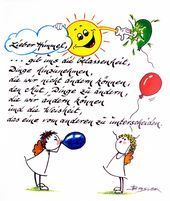 Lieber Himmel,
... gib uns die Gelassenheit,
Dinge hinzunehmen,
die wir nicht ändern können,
den Mut, Dinge zu ändern,
die wir ändern können
und die Weisheit,
das eine vom anderen zu unterscheiden.